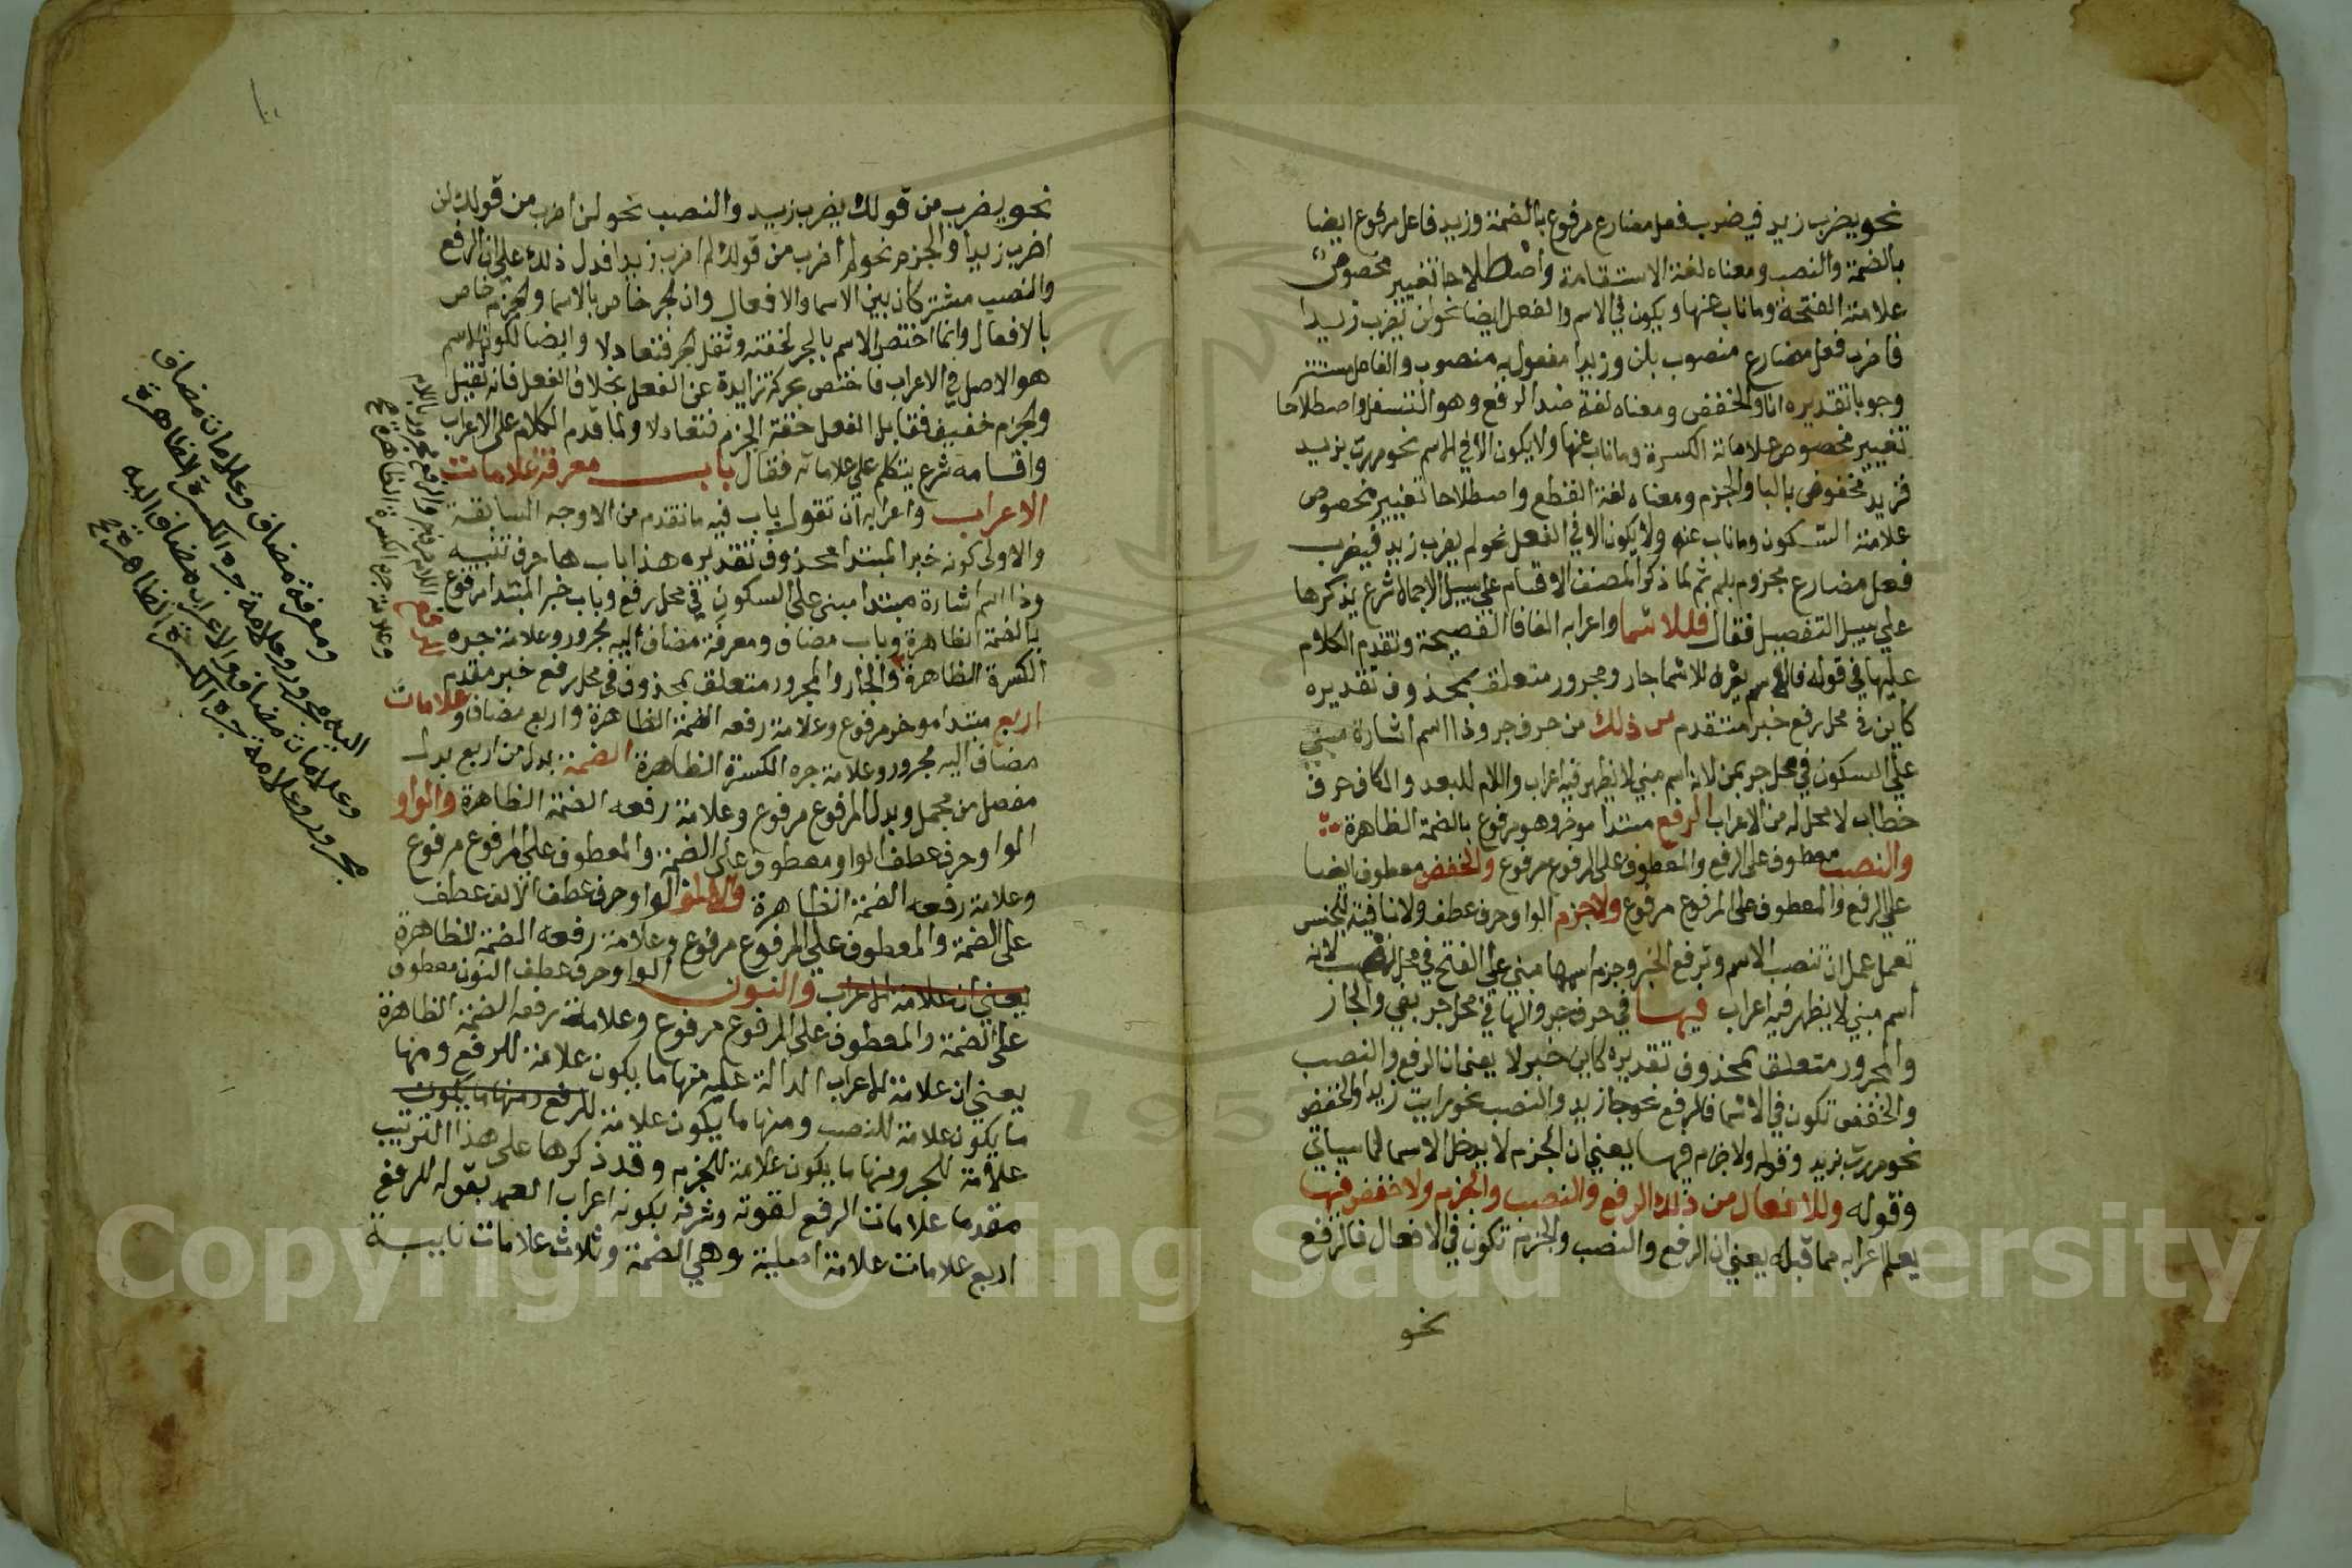 نحو يضرب زيد فيضرب فعل مضارع مرفوع بالضمة وزيد فاعل مرفوع ايضا
بالضمة والنصب ومعناه لغة الاستقامة واصطلاحا تغيير مخصوص
علامته الفتحة وما ناب عنها ويكون في الاسم والفعل ايضا نحو لن نضرب زيدا
فاضرب فعل مضارع منصوب بلن وزيدا مفعول به منصوب والفاعل مستتر
وجوبا تقديره انا والخفض ومعناه لغة ضد الرفع وهو التسفل واصطلاحا
تغيير مخصوص علامته الكسرة وما ناب عنها ولا يكون الا في الاسم نحو مررت بزيد
فزيد مخفوض بالبا والجزم ومعناه لغة القطع واصطلاحا تغيير مخصوص
علامته السكون وما ناب عنه ولا يكون الا في الفعل نحو لم يضرب زيد فيضرب
فعل مضارع مجزوم بلم ثم لما ذكر المصنف الاقسام علي سبيل الاجمال شرع يذكرها
علي سبيل التفصيل فقال فللاسما واعرابه الفا فا الفصيحة وتقدم الكلام
عليها في قوله فالاسم يعرف للاسما جار ومجرور متعلق بمحذوف تقديره
كاين في محل رفع خبر متقدم من ذلك من حرف جر وذا اسم اشارة مبني
علي السكون في محل جر بمن لانه اسم مبني لا يظهر فيه اعراب واللام للبعد والكاف حرف
خطاب لا محل له من الاعراب الرفع مبتدا موخر وهو مرفوع بالضمة الظاهرة
والنصب معطوف علي الرفع والمعطوف علي المرفوع مرفوع والخفض معطوف ايضا
علي الرفع والمعطوف علي المرفوع مرفوع ولا جزم الواو حرف عطف ولا نافية للجنس
تعمل عمل ان تنصب الاسم وترفع الخبر وجزم اسمها مبني علي الفتح في محل نصب لانه
اسم مبني لا يظهر فيه اعراب فيها في حرف جر والها في محل جر بفي والجار
والمجرور متعلق بمحذوف تقديره كاين خبر لا يعني ان الرفع والنصب
والخفض تكون في الاسما فالرفع نحو جا زيد والنصب نحو رايت زيدا والخفض
نحو مررت بزيد وقوله ولا جزم فيها يعني ان الجزم لا يدخل الاسما لما سياتي
وقوله وللافعال من ذلك الرفع والنصب والجزم ولا خفض فيها
يعلم اعرابه مما قبله يعني ان الرفع والنصب والجزم تكون في الافعال فالرفع
نحو
نحو يضرب من قولك يضرب زيد والنصب نحو لن اضرب من قولك لن
اضرب زيدا والجزم نحو لم اضرب من قولك لم اضرب زيدا فدل ذلك علي ان الرفع
والنصب مشتركان بين الاسما والافعال وان الجر خاص بالاسما والجزم خاص
بالافعال وانما اختص الاسم بالجر لخفته وثقل الجر فتعادلا وايضا لكون الاسم
هو الاصل في الاعراب فاختص بحركة زايدة عن الفعل بخلاف الفعل فانه ثقيل
والجزم خفيف فقابل الفعل خفة الجزم فتعادلا ولما قدم الكلام علي الاعراب
واقسامه شرع يتكلم علي علاماته فقال باب معرفة علامات
الاعراب واعرابه ان تقول باب فيه ما تقدم من الاوجه السابقة
والاولى كونه خبر المبتدا محذوف تقديره هذا باب ها حرف تنبيه
وذا اسم اشارة مبتدا مبني علي السكون في محل رفع وباب خبر المبتدا مرفوع
بالضمة الظاهرة وباب مضاف ومعرفة مضاف اليه مجرور وعلامة جره
الكسرة الظاهرة والجار والمجرور متعلق بمحذوف في محل رفع خبر مقدم
اربع مبتدا موخر مرفوع وعلامة رفعه الضمة الظاهرة واربع مضاف وعلامات
مضاف اليه مجرور وعلامة جره الكسرة الظاهرة الضمة بدل من اربع بدل
مفصل من مجمل وبدل المرفوع مرفوع وعلامة رفعه الضمة الظاهرة والواو
الواو حرف عطف الواو معطوف علي الضمة والمعطوف علي المرفوع مرفوع
وعلامة رفعه الضمة الظاهرة والالف الواو حرف عطف الالف عطف
علي الضمة والمعطوف علي المرفوع مرفوع وعلامة رفعه الضمة الظاهرة
يعني ان علامة الاعراب والنون الواو حرف عطف النون معطوف
علي الضمة والمعطوف علي المرفوع مرفوع وعلامة رفعه الضمة الظاهرة
يعني ان علامة الاعراب الدالة عليه منها ما يكون علامة للرفع ومنها
ما يكون علامة للنصب ومنها ما يكون علامة للرفع ومنها ما يكون
علامة للجر ومنها ما يكون علامة للجزم وقد ذكرها علي هذا الترتيب
مقدما علامات الرفع لقوته وشرفه بكونه اعراب العمد بقوله للرفع
اربع علامات علامة اصلية وهي الضمة وثلاث علامات نايبة
ومعرفة مضاف وعلامات مضاف
اليه مجرور وعلامة جره الكسرة الظاهرة
وعلامات مضاف والاعراب مضاف اليه
مجرور وعلامة جره الكسرة الظاهرة
اللام حرف جر والرفع مجرور باللام
وعلامة جره الكسرة الظاهرة
Copyright © King Saud University
195